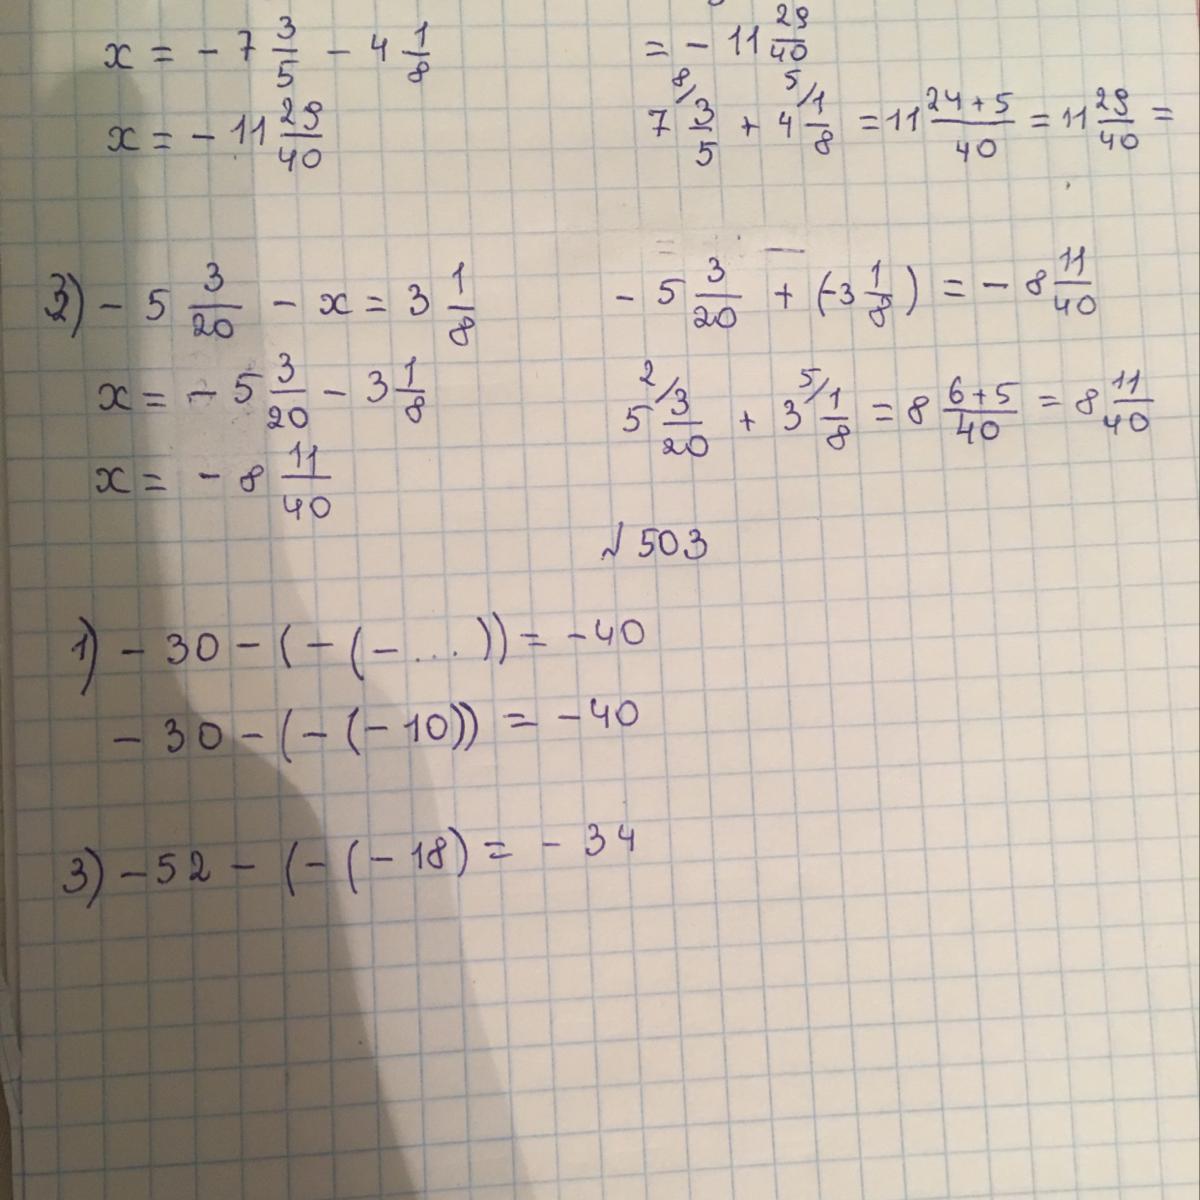 x = - 7 3/5 - 4 1/8
x = - 11 29/40
= - 11 29/40
7 8/ 3/5 + 4 5/ 1/8 = 11 24+5/40 = 11 29/40 =
- 5 3/20 - x = 3 1/8
x = - 5 3/20 - 3 1/8
x = - 8 11/40
- 5 3/20 + (-3 1/8) = - 8 11/40
5 2/ 3/20 + 3 5/ 1/8 = 8 6+5/40 = 8 11/40
№ 503
1) - 30 - (- (- ... )) = - 40
- 30 - (- (- 10)) = - 40
3) - 52 - (- (- 18) = - 34